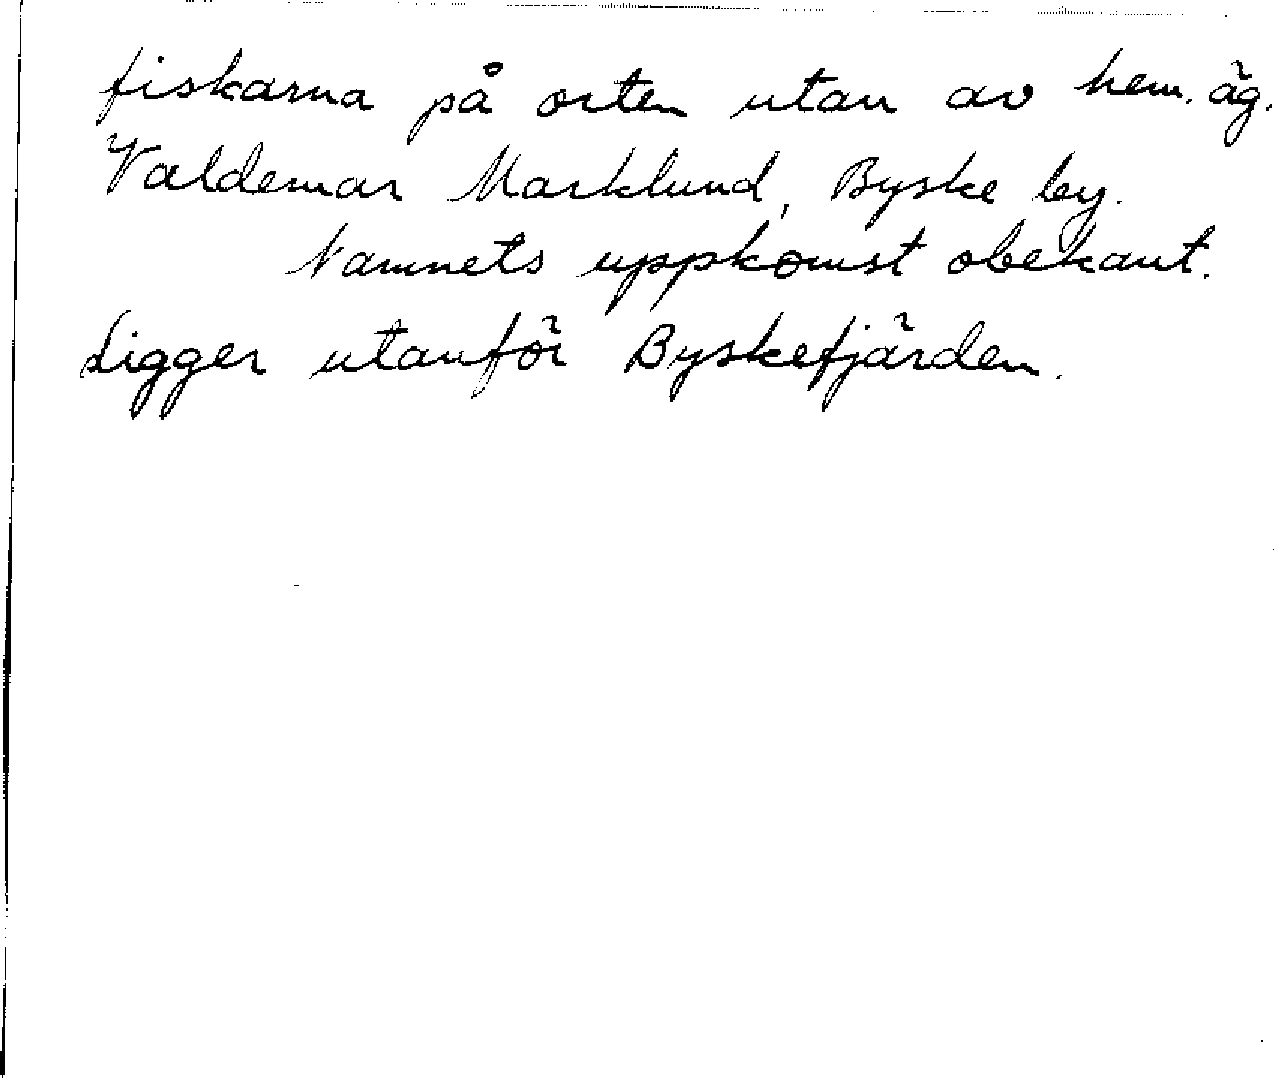 fiskarna på orten utan av hem. äg.
Valdemar Marklund, Byske by.
Namnets uppkomst obekant.
Ligger utanför Byskefjärden.